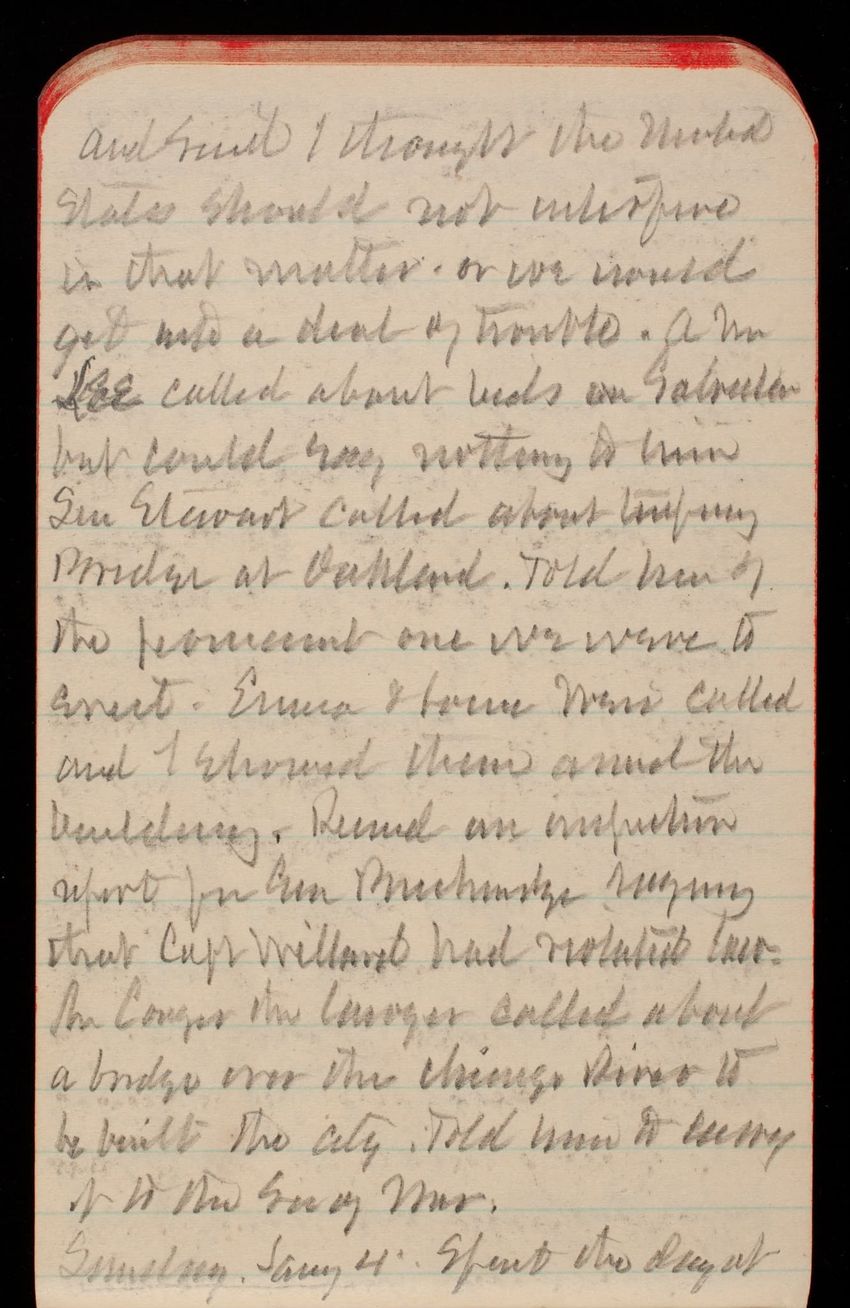 and said I thought the United
States should not interfere
in that matter. or we would
get into a deal of trouble. A Mr
Lee called about beds in Galveston
but could say nothing to him
Gen Stewart called about
Bridge at Oakland. Told him of
the permanent one we were to
erect. Emma & were called
and I showed them around the
building. Recued an inspection
report from Gen Breckinridge saying
that Capt Willard had violated law.
Mr Conger the lawyer called about
a bridge over the Chicago River to
be built the city. Told him to carry
it to the Secy War.
Sunday. Jany 4. Spent the day at